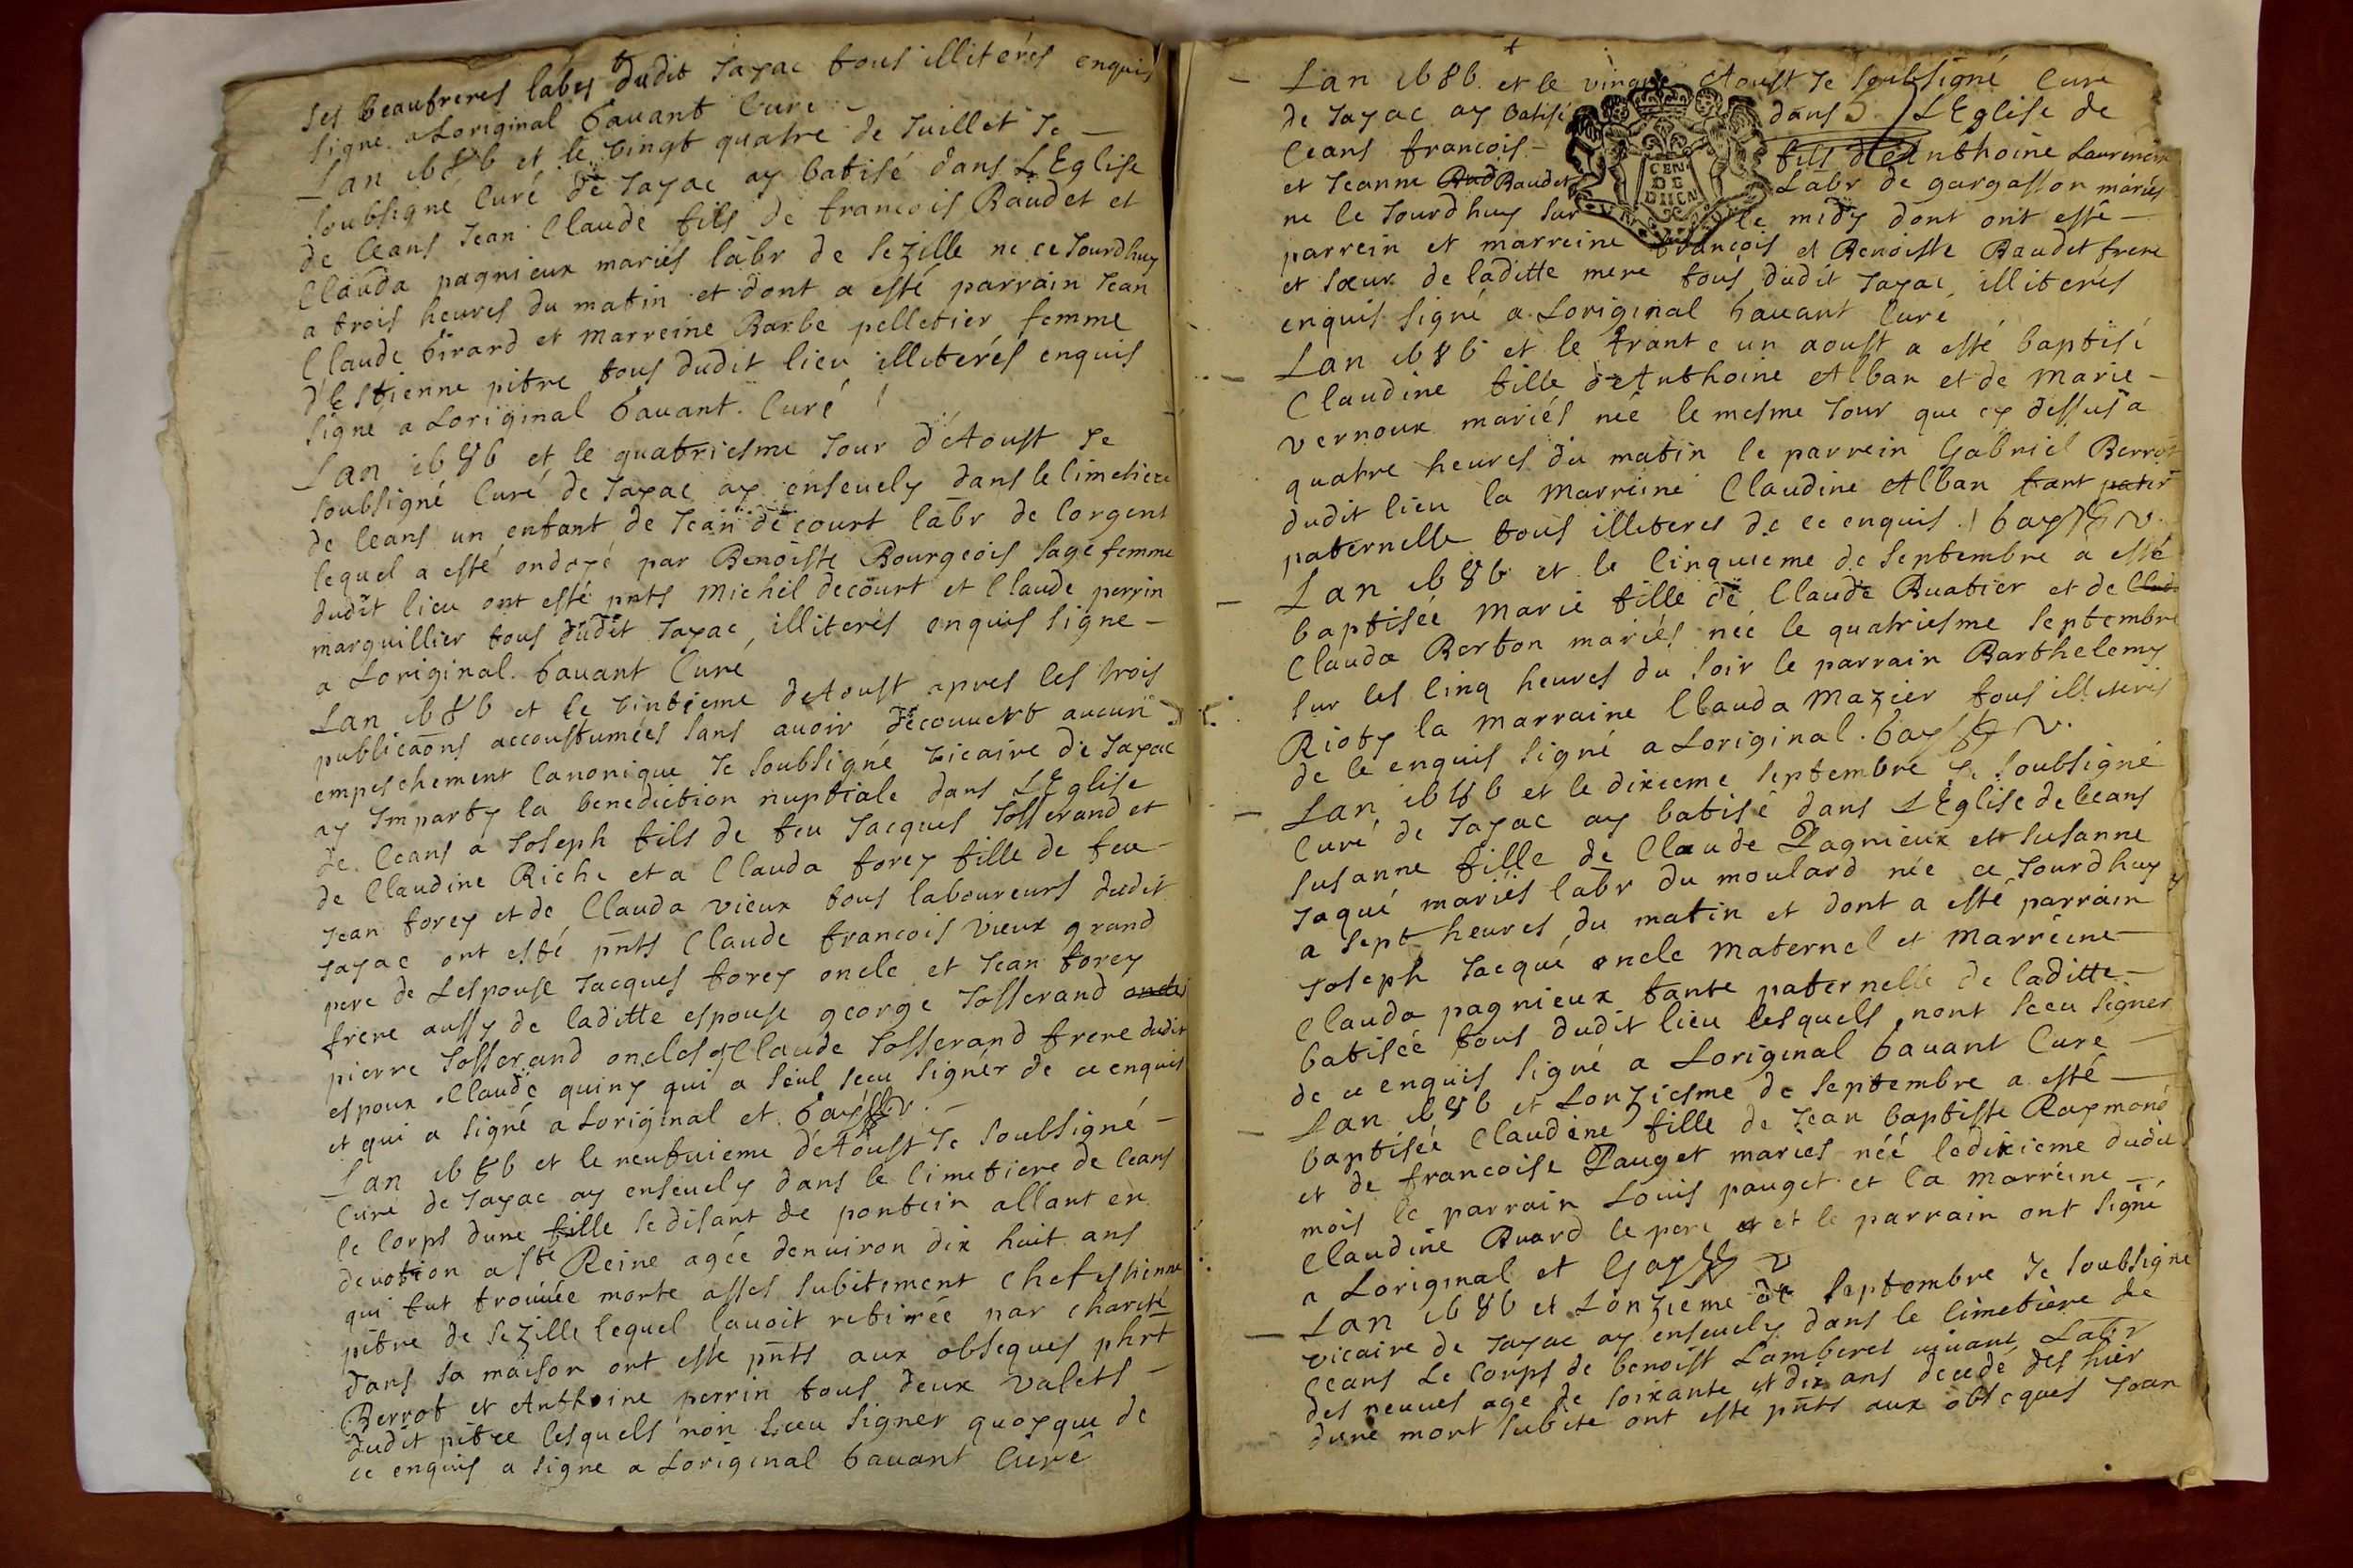 ses beaufreres labrs dudit Jayac tous illiterés enquis
signe a Loriginal bavant Curé
Lan 1686 et le vingt quatre de Juillet Je
soubsigné Curé de Jayac ay batisé dans LEglise
de Ceans Jean Claude fils de francois Baudet et
Clauda pagnieux mariés labr de sezille ne ce Jourdhuy
a trois heures du matin et dont a esté parrain Jean
Claude birard et marreine Barbe pelletier femme
d'Estienne pitre tous dudit lieu illiterés enquis
signé a Loriginal bavant Curé
Lan 1686 et le quatriesme Jour d'Aoust Je
soubsigné Curé de Jayac ay enseuely dans le Cimetiere
de Ceans un enfant de Jean decourt labr de lorgent
lequel a esté ondoyé par Benoiste Bourgeois sage femme
dudit lieu ont esté pnts Michel decourt et Claude perrin
marguillier tous dudit Jayac illiterés enquis signe
a Loriginal bavant Curé
Lan 1686 et le vintieme d'Aoust apres les trois
publicaons accoustumées sans auoir decouuert aucun
empeschement Canonique Je soubsigné vicaire de Jayac
ay Imparty la benediction nuptiale dans LEglise
de Ceans a Joseph fils de feu Jacques Josserand et
de Claudine Riche et a Clauda forey fille de feu
Jean forey et de Clauda vieux tous laboureurs dudit
Jayac ont esté pnts Claude francois vieux grand
pere de Lespouse Jacques forey oncle et Jean forey
frere aussy de laditte espouse george Josserand oncles
pierre Josserand oncles Claude Josserand frere dudit
espoux Claude quiny qui a seul sceu signér de ce enquis
et qui a signé a Loriginal et bay v.
Lan 1686 et le neufuieme d'Aoust Je soubsigné
Curé de Jayac ay enseuely dans le Cimetiere de Ceans
le Corps dune fille se disant de pontein allant en
devotion a Ste Reine agée denuiron dix huit ans
qui fut trouuée morte asses subitement chef estienne
pitre de sezille lequel lauoit retirée par charité
dans sa maison ont esté pnts aux obseques phrt
Berrot et Anthoine perrin tous deux valets
dudit pitre lesquels non sceu signer quoyque de
ce enquis a signe a Loriginal bavant Curé
Lan 1686 et le Aoust Je soubsigné Curé
de Jayac ay batisé dans LEglise de
Ceans francois fils d'Anthoine Laurencin
et Jeanne Bad Baudet Labr de gargasson mariés
ne le Jourdhuy sur le midy dont ont esté
parrein et marreine francois et Benoiste Baudet frere
et sœur de laditte mere tous dudit Jayac illiterés
enquis signé a Loriginal bavant Curé
Lan 1686 et le trante un aoust a esté baptisé
Claudine fille d'Anthoine Alban et de Marie
vernoux mariés née le mesme Jour que cy dessus a
quatre heures du matin le parrein Gabriel Berrot
dudit lieu la Marreine Claudine Alban tant pater
paternelle tous illiteres de ce enquis bay v.
Lan 1686 et le Cinquieme de Septembre a esté
baptisée Marie fille de Claude Ruatier et de Claud
Clauda Berton mariés née le quatriesme Septembre
sur les Cinq heures du soir le parrain Barthelemy
Rioty la Marraine Clauda Mazier tous illiterés
de Ce enquis signé a Loriginal. bay v.
Lan 1686 et le dixieme Septembre Je soubsigné
Curé de Jayac ay batisé dans LEglise de Ceans
Susanne fille de Claude Pagnieux et Susanne
Jaqué mariés labr du moulard née ce Jourdhuy
a sept heures du matin et dont a esté parrain
Joseph Jacqué oncle Maternel et Marréine
Clauda pagnieux tante paternelle de laditte
batisée tous dudit lieu lesquels nont sceu signer
de ce enquis signé a Loriginal bavant Curé
Lan 1686 et Lonziesme de Septembre a esté
baptisée Claudine fille de Jean baptiste Raymond
et de francoise Pauget mariés néé le dixieme dudit
mois le parrain Louis pauget et la Marréine
Claudine Ruard le pere et et le parrain ont signé
a Loriginal et Gay v
Lan 1686 et Lonzieme de Septembre Je soubsigne
vicaire de Jayac ay enseuely dans le Cimetière de
Ceans Le Corps de benoist Lamberet viuant Labr
des neuues agé de soixante et dix ans decedé des hier
dune mort subite ont esté pnts aux obseques Jean